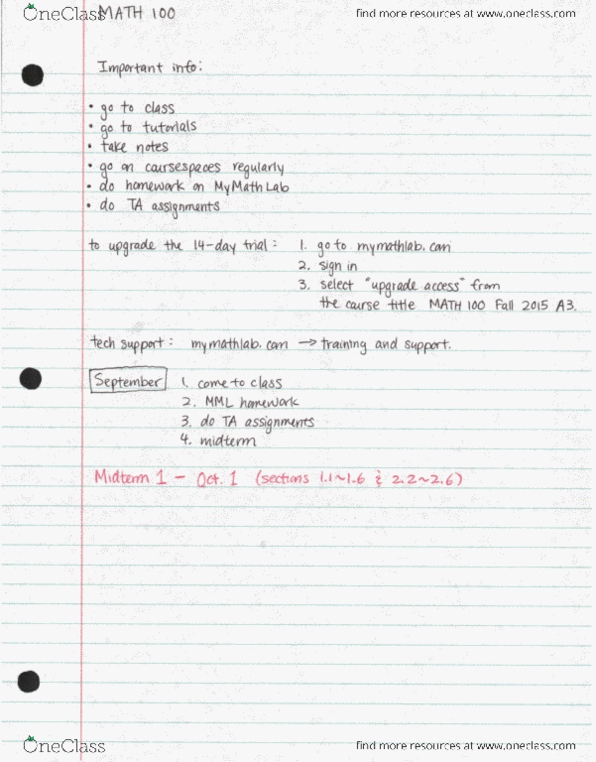 OneClass MATH 100 find more resources at www.oneclass.com
Important info:
• go to class
• go to tutorials
• take notes
• go on coursespaces regularly
• do homework on MyMathLab
• do TA assignments
to upgrade the 14-day trial: 1. go to mymathlab.com
2. sign in
3. select "upgrade access" from
the course title MATH 100 Fall 2015 A3.
tech support: mymathlab.com → training and support.
September 1. come to class
2. MML homework
3. do TA assignments
4. midterm
Midterm 1 - Oct. 1 (sections 1.1~1.6 & 2.2~2.6)
OneClass find more resources at www.oneclass.com